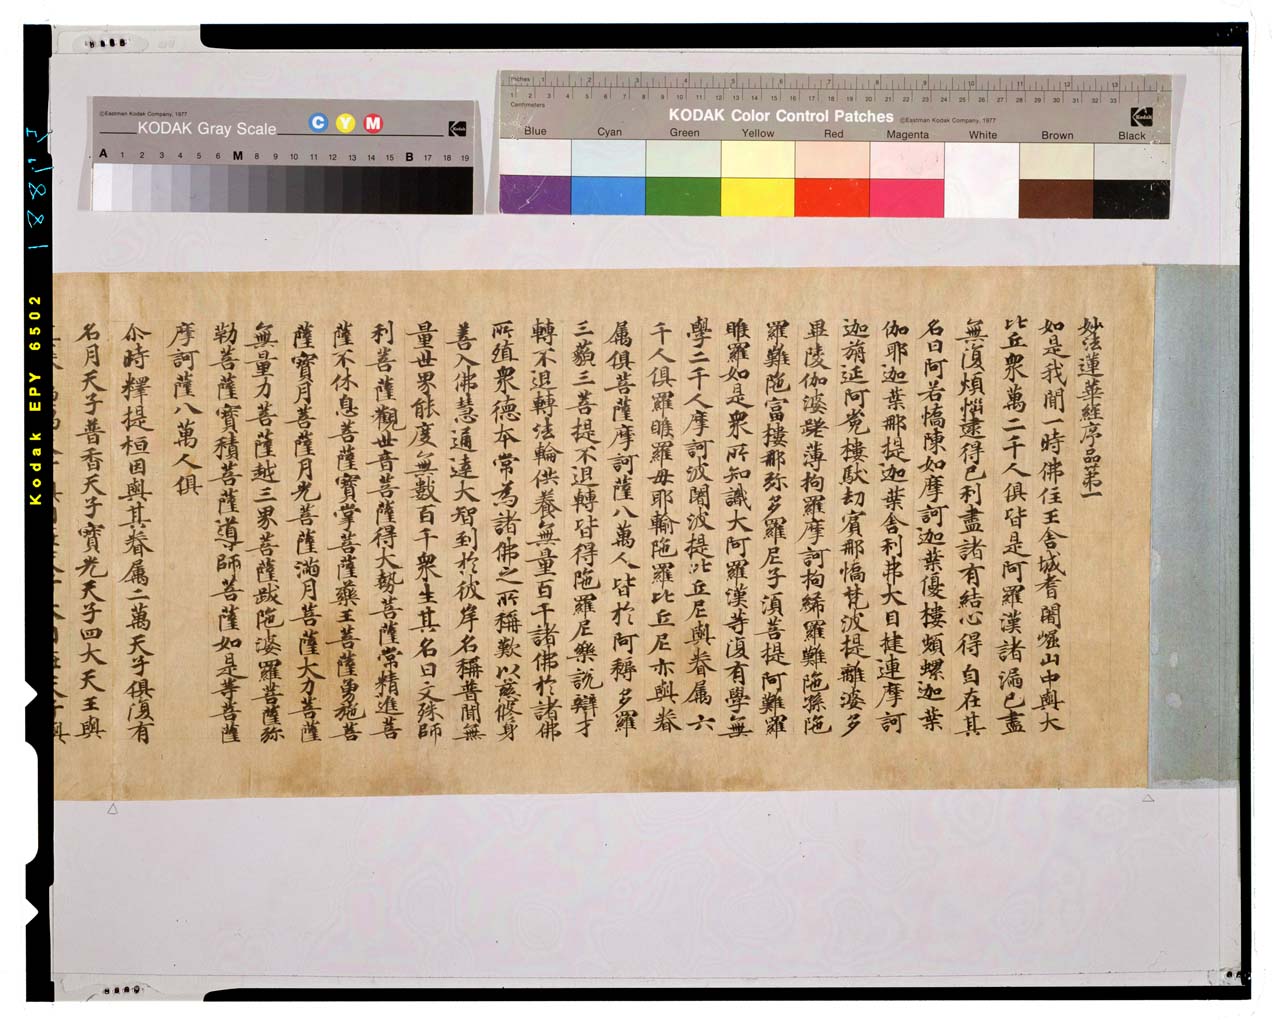 ©Eastman Kodak Company, 1977
KODAK Gray Scale
C Y M
Kodak
A 1 2 3 4 5 6 M 8 9 10 11 12 13 14 15 B 17 18 19
Inches 1 2 3 4 5 6 7 8 9 10 11 12 13
Centimeters 1 2 3 4 5 6 7 8 9 10 11 12 13 14 15 16 17 18 19 20 21 22 23 24 25 26 27 28 29 30 31 32 33
KODAK Color Control Patches ©Eastman Kodak Company, 1977
Kodak
Blue Cyan Green Yellow Red Magenta White Brown Black
Kodak EPY 6502
妙法蓮華經序品第一
如是我聞一時佛住王舍城耆闍崛山中與大
比丘衆萬二千人俱皆是阿羅漢諸漏已盡
無復煩惱逮得已利盡諸有結心得自在其
名曰阿若憍陳如摩訶迦葉優樓頻螺迦葉
伽耶迦葉那提迦葉舍利弗大目揵連摩訶
迦旃延阿㝹樓馱劫賓那憍梵波提離婆多
畢陵伽婆蹉薄拘羅摩訶拘絺羅難陁孫陁
羅難陁富樓那弥多羅尼子湏菩提阿難羅
睺羅如是衆所知識大阿羅漢等復有學無
學二千人摩訶波闍波提比丘尼與眷属六
千人俱羅睺羅母耶輸陁羅比丘尼亦與眷
属俱菩薩摩訶薩八萬人皆於阿耨多羅
三藐三菩提不退轉皆得陁羅尼樂說辯才
轉不退轉法輪供養無量百千諸佛於諸佛
所殖衆德本常為諸佛之所稱歎以慈脩身
善入佛慧通達大智到於彼岸名稱普聞無
量世界能度無數百千衆生其名曰文殊師
利菩薩觀世音菩薩得大勢菩薩常精進菩
薩不休息菩薩寶掌菩薩藥王菩薩勇施菩
薩寶月菩薩月光菩薩滿月菩薩大力菩薩
無量力菩薩越三界菩薩跋陁婆羅菩薩弥
勒菩薩寶積菩薩導師菩薩如是等菩薩
摩訶薩八萬人俱
尒時釋提桓因與其眷属二萬天子俱復有
名月天子普香天子寶光天子四大天王與